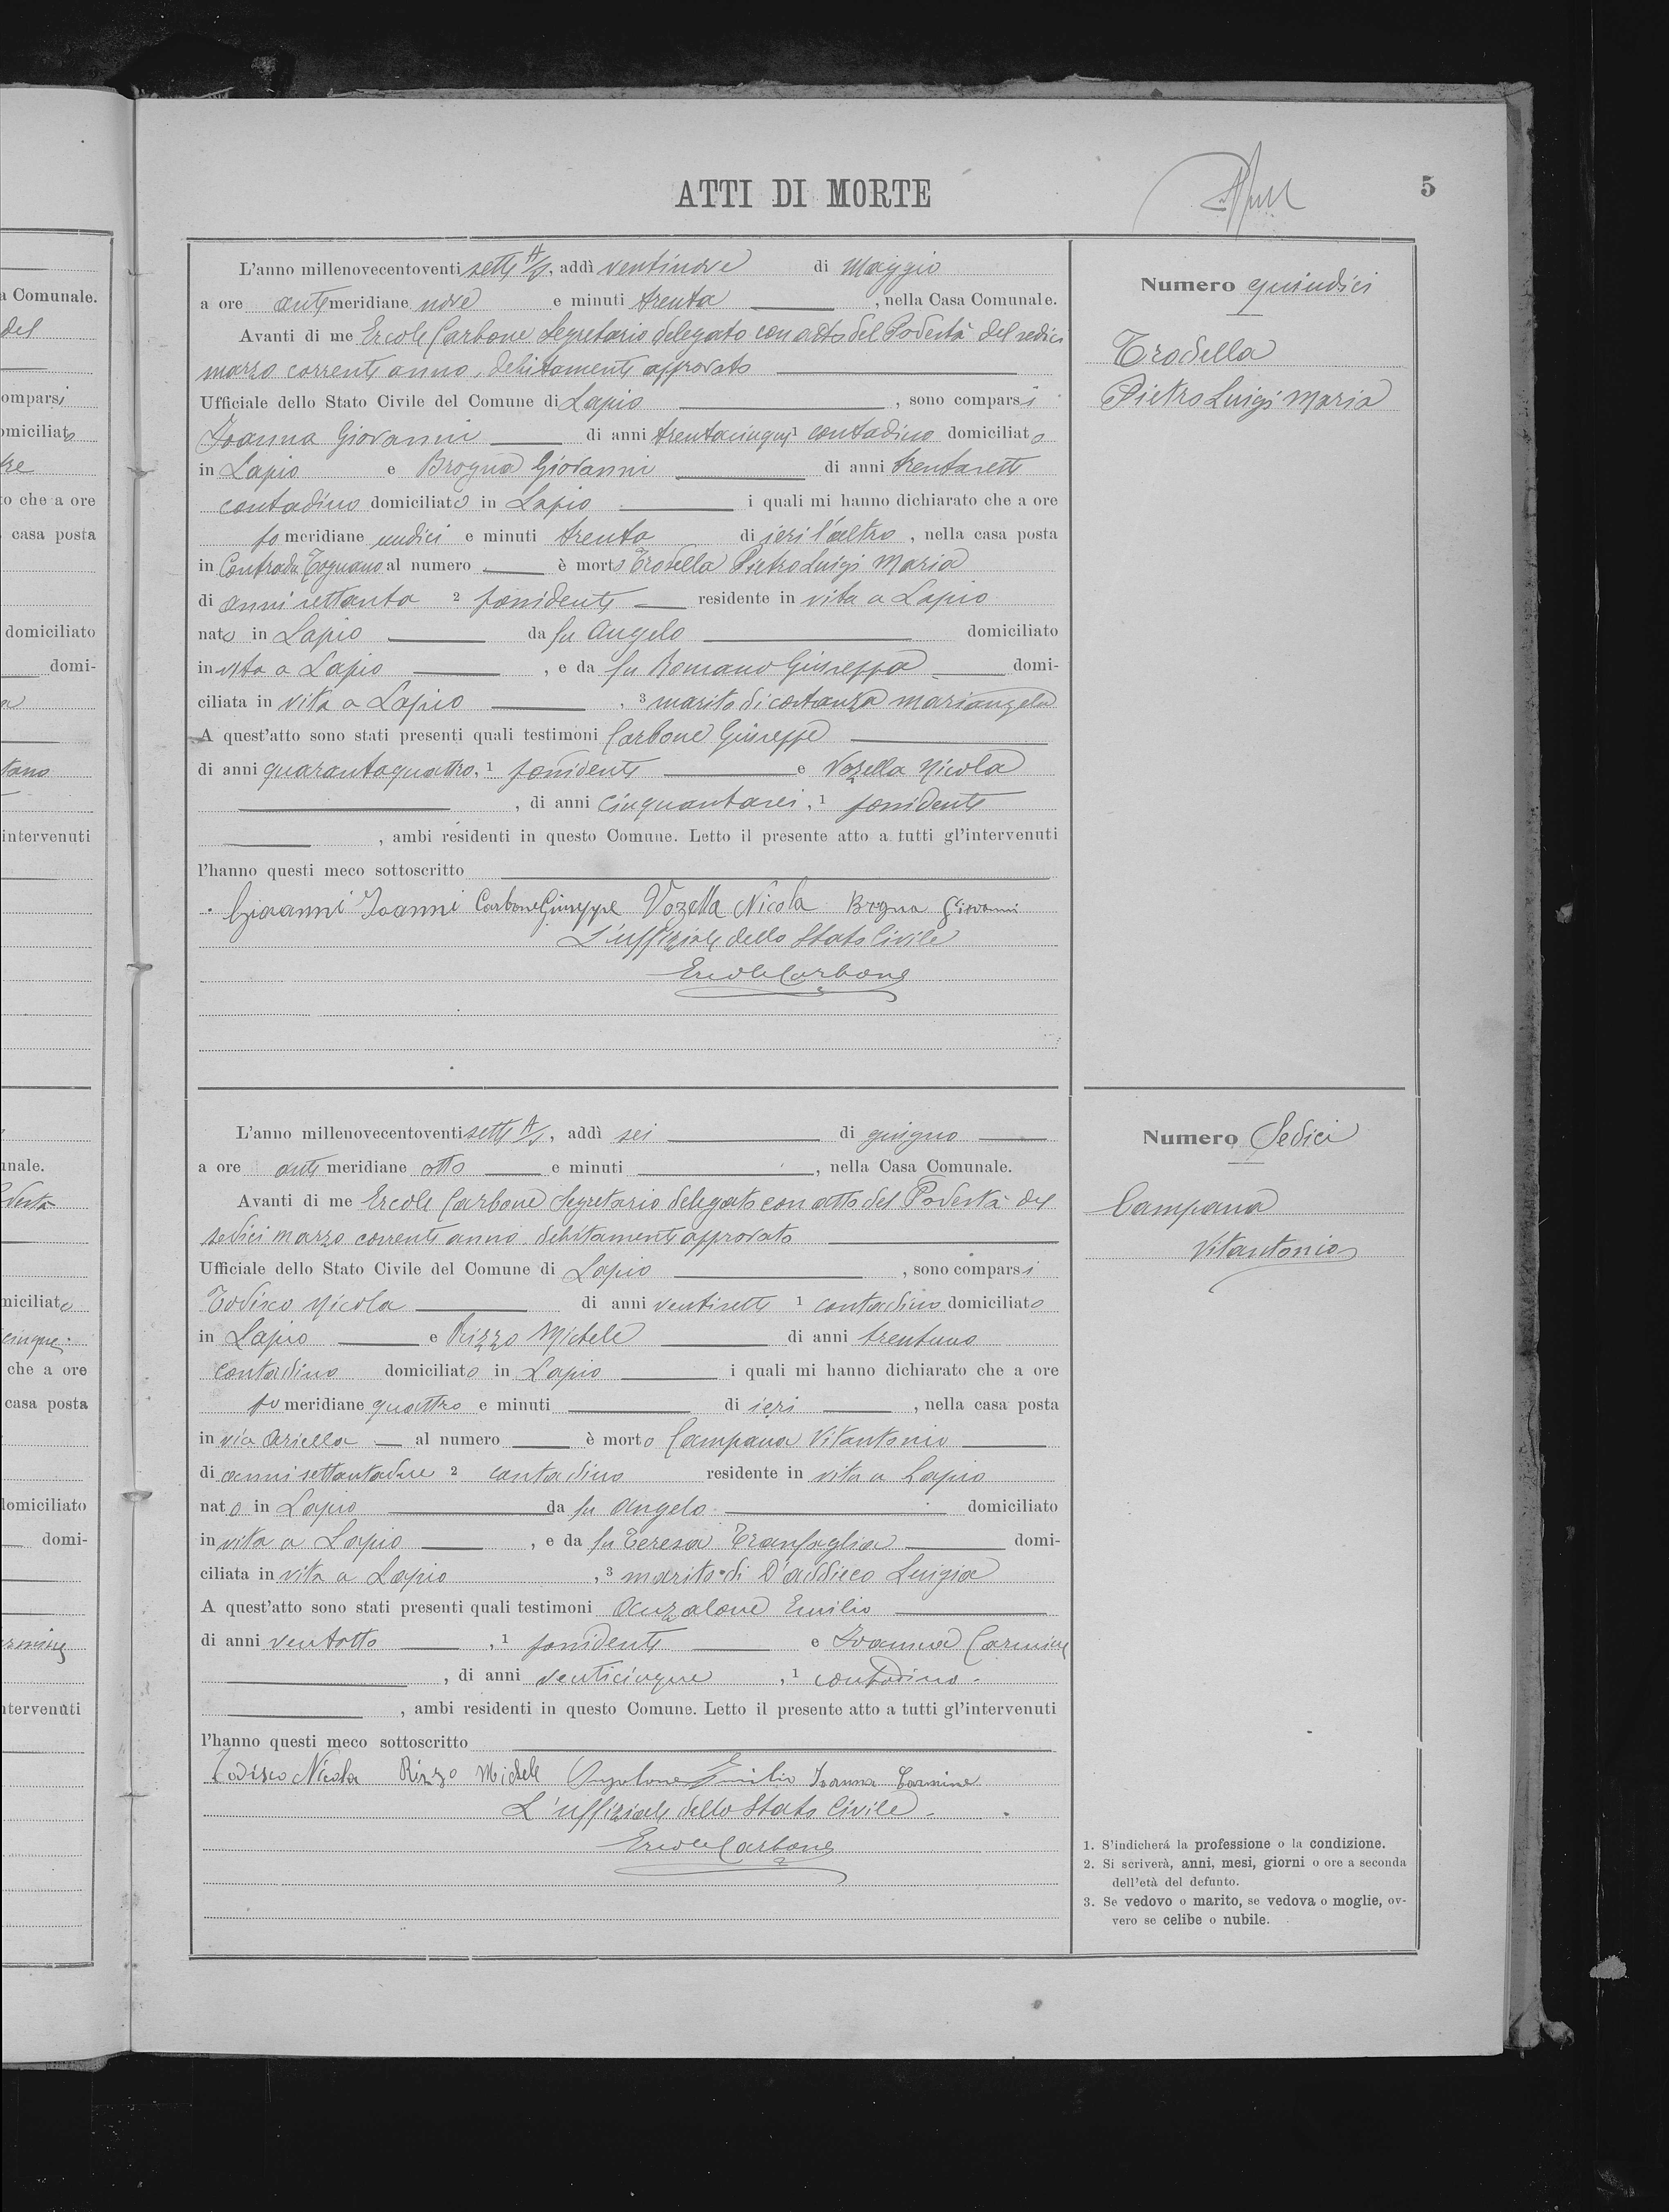 ATTI DI MORTE
5
L'anno millenovecentoventi sette A/V, addì ventinove di Maggio
a ore antimeridiane nove e minuti trenta, nella Casa Comunale.
Avanti di me Ercole Carbone Segretario delegato con atto del Podestà del sedici
marzo corrente anno, debitamente approvato
Ufficiale dello Stato Civile del Comune di Lapio, sono comparsi
Joanna Giovanni di anni trentacinque 1 contadino domiciliato
in Lapio e Brogna Giovanni di anni trentasette
contadino domiciliato in Lapio i quali mi hanno dichiarato che a ore
po meridiane undici e minuti trenta di ieri l'altro, nella casa posta
in Contrada Tognano al numero è morto Trodella Pietro Luigi Maria
di anni settanta 2 possidente residente in vita a Lapio
nato in Lapio da fu Angelo domiciliato
in vita a Lapio, e da fu Romano Giuseppa domi-
ciliata in vita a Lapio, 3 marito di Costanza Mariangela
A quest'atto sono stati presenti quali testimoni Carbone Giuseppe
di anni quarantaquattro, 1 possidente e Vozella Nicola
, di anni cinquantasei, 1 possidente
, ambi residenti in questo Comune. Letto il presente atto a tutti gl'intervenuti
l'hanno questi meco sottoscritto
Giovanni Joanni Carbone Giuseppe Vozella Nicola Brogna Giovanni
L'uffiziale dello Stato Civile
Ercole Carbone
Numero quindici
Trodella
Pietro Luigi Maria
L'anno millenovecentoventi sette A/V, addì sei di giugno
a ore anti meridiane otto e minuti, nella Casa Comunale.
Avanti di me Ercole Carbone Segretario delegato con atto del Podestà del
sedici marzo corrente anno debitamente approvato
Ufficiale dello Stato Civile del Comune di Lapio, sono comparsi
Todisco Nicola di anni ventisette 1 contadino domiciliato
in Lapio e Rizzo Michele di anni trentuno
contadino domiciliato in Lapio i quali mi hanno dichiarato che a ore
po meridiane quattro e minuti di ieri, nella casa posta
in via Ariella al numero è morto Campana Vitantonio
di anni settantadue 2 contadino residente in vita a Lapio
nato in Lapio da fu Angelo domiciliato
in vita a Lapio, e da fu Teresa Tranfaglia domi-
ciliata in vita a Lapio, 3 marito di D'addieco Luigia
A quest'atto sono stati presenti quali testimoni Anzalone Emilio
di anni ventotto, 1 possidente e Joanna Carmine
, di anni venticinque, 1 contadino.
, ambi residenti in questo Comune. Letto il presente atto a tutti gl'intervenuti
l'hanno questi meco sottoscritto
Todisco Nicola Rizzo Michele Anzalone Emilio Joanna Carmine
L'uffiziale dello Stato Civile.
Ercole Carbone
Numero Sedici
Campana
Vitantonio
1. S'indicherá la professione o la condizione.
2. Si scriverà, anni, mesi, giorni o ore a seconda
dell'età del defunto.
3. Se vedovo o marito, se vedova o moglie, ov-
vero se celibe o nubile.